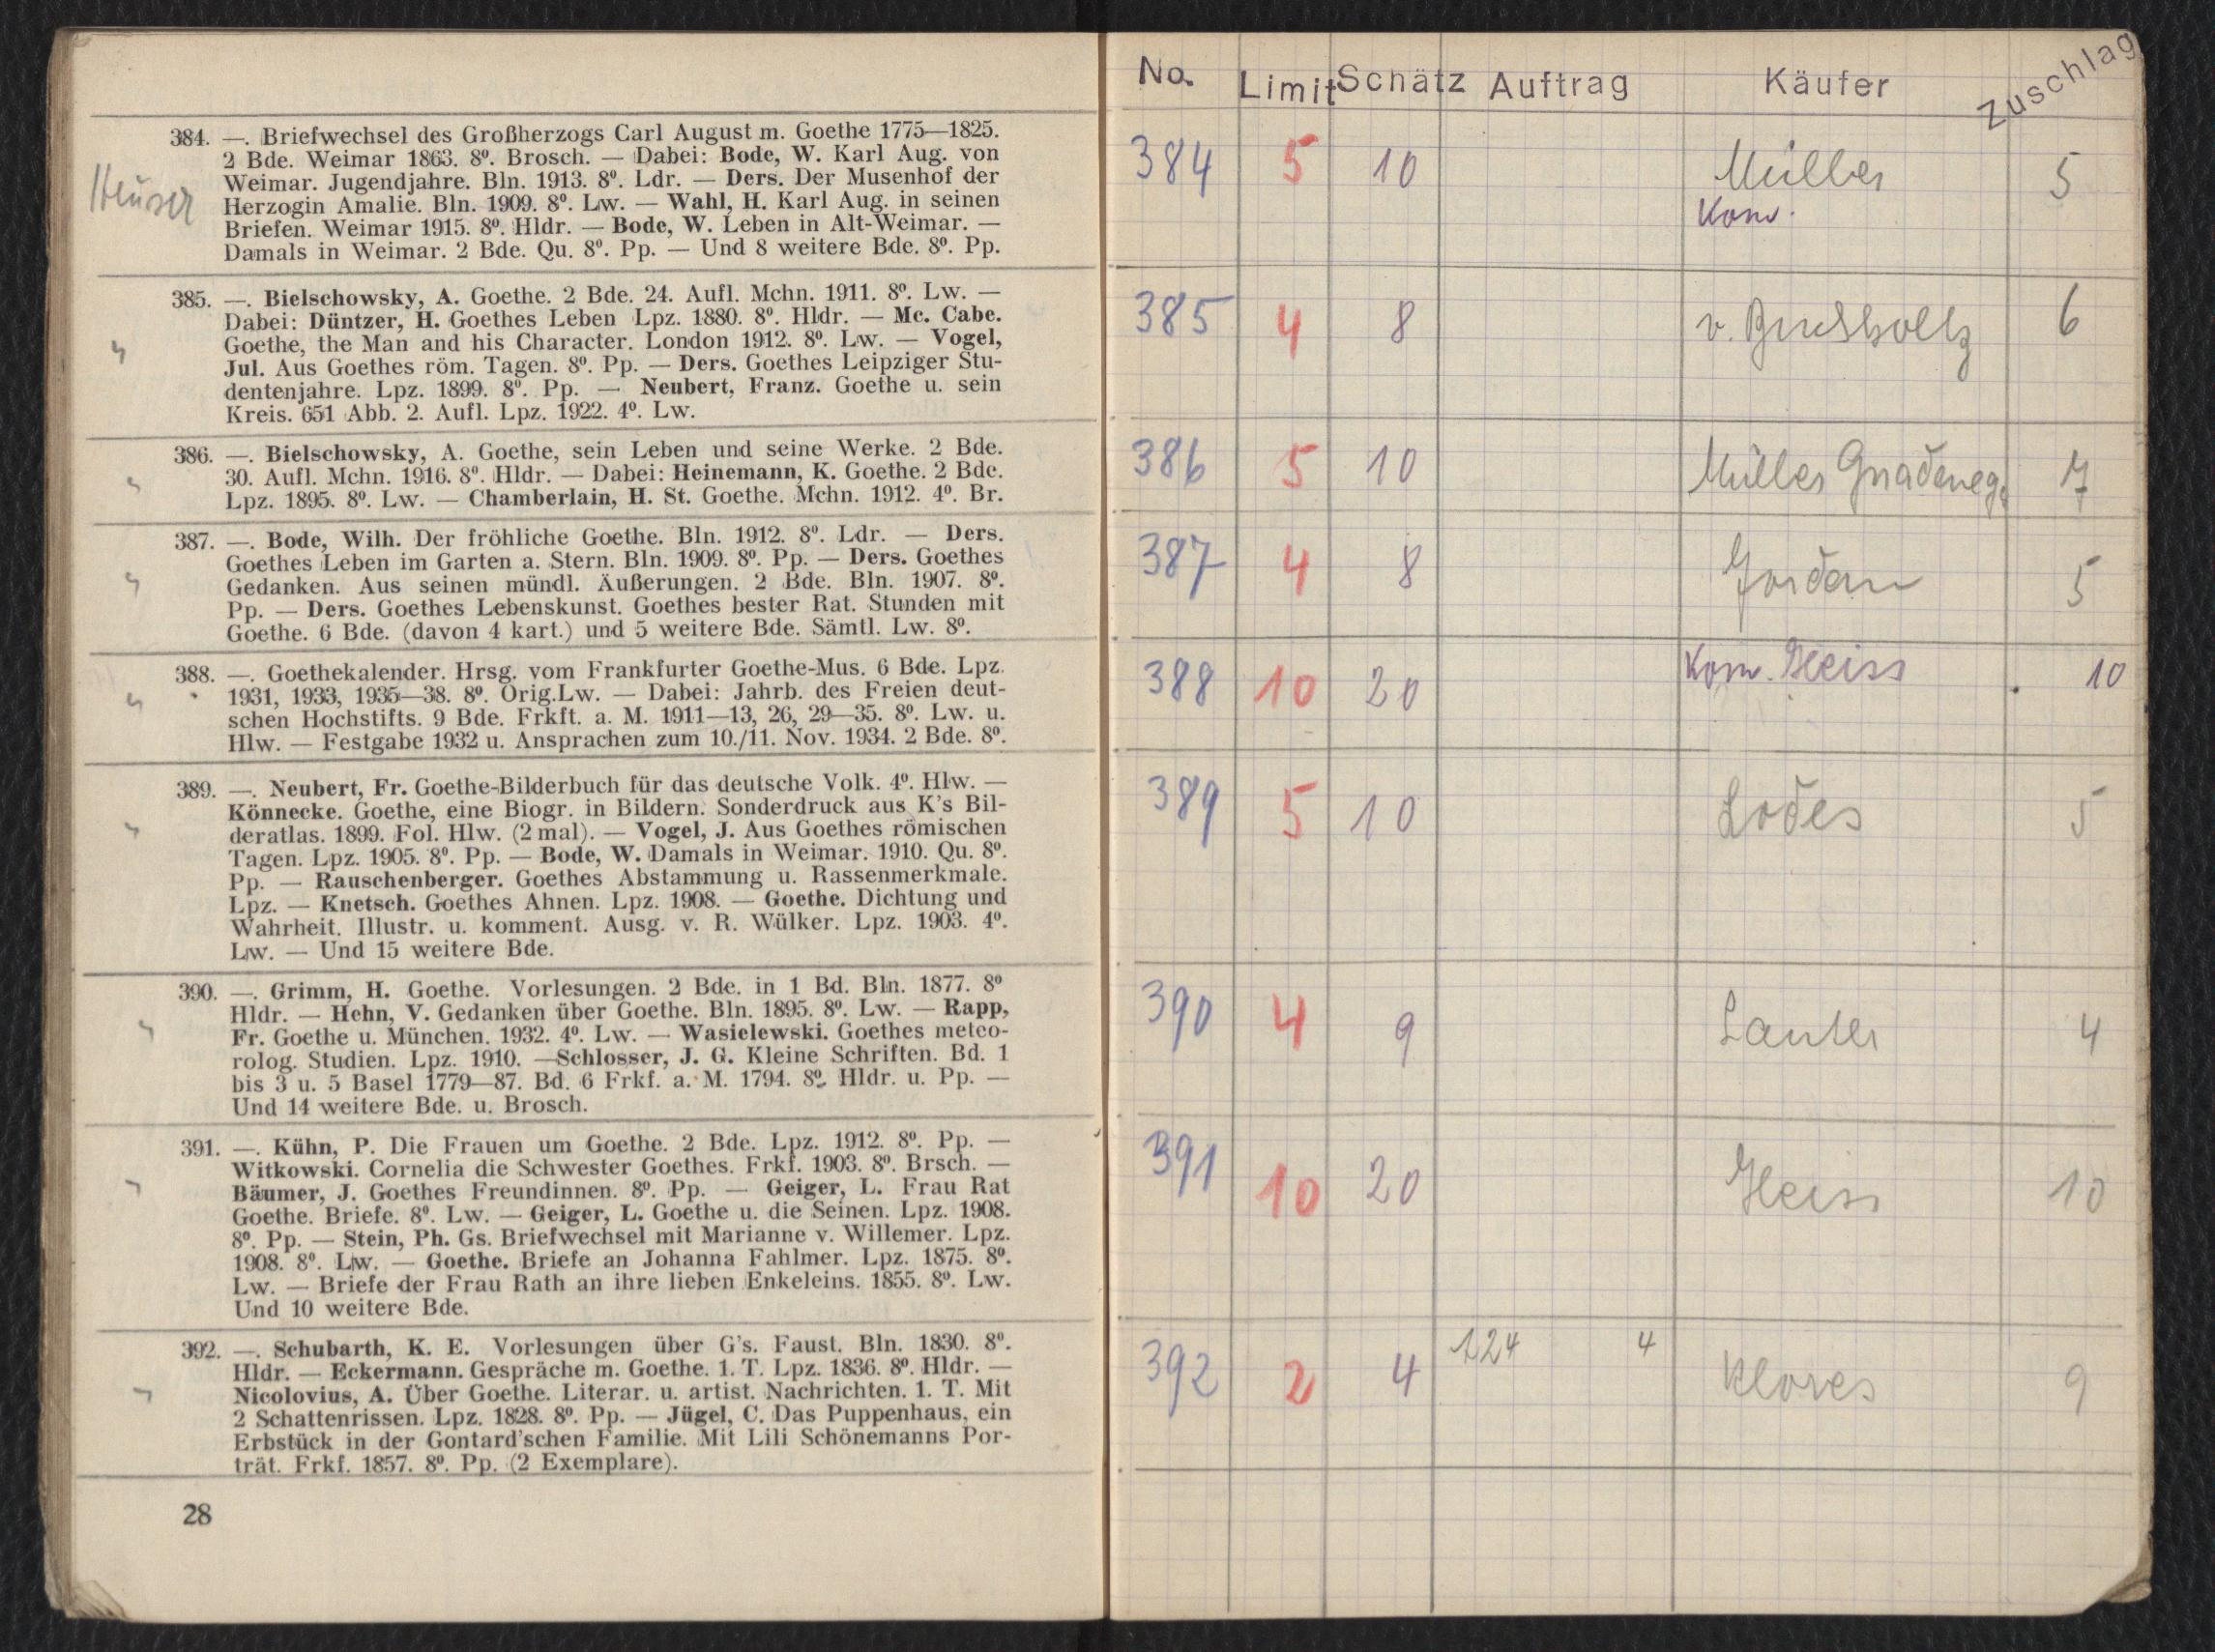 384. —. Briefwechsel des Großherzogs Carl August m. Goethe 1775—1825.
2 Bde. Weimar 1863. 8⁰. Brosch. — Dabei: Bode, W. Karl Aug. von
Weimar. Jugendjahre. Bln. 1913. 8⁰. Ldr. — Ders. Der Musenhof der
Herzogin Amalie. Bln. 1909. 8⁰. Lw. — Wahl, H. Karl Aug. in seinen
Briefen. Weimar 1915. 8⁰. Hldr. — Bode, W. Leben in Alt-Weimar. —
Damals in Weimar. 2 Bde. Qu. 8⁰. Pp. — Und 8 weitere Bde. 8⁰. Pp.
385. —. Bielschowsky, A. Goethe. 2 Bde. 24. Aufl. Mchn. 1911. 8⁰. Lw. —
Dabei: Düntzer, H. Goethes Leben Lpz. 1880. 8⁰. Hldr. — Mc. Cabe.
Goethe, the Man and his Character. London 1912. 8⁰. Lw. — Vogel,
Jul. Aus Goethes röm. Tagen. 8⁰. Pp. — Ders. Goethes Leipziger Stu-
dentenjahre. Lpz. 1899. 8⁰. Pp. — Neubert, Franz. Goethe u. sein
Kreis. 651 Abb. 2. Aufl. Lpz. 1922. 4⁰. Lw.
386. —. Bielschowsky, A. Goethe, sein Leben und seine Werke. 2 Bde.
30. Aufl. Mchn. 1916. 8⁰. Hldr. — Dabei: Heinemann, K. Goethe. 2 Bde.
Lpz. 1895. 8⁰. Lw. — Chamberlain, H. St. Goethe. Mchn. 1912. 4⁰. Br.
387. —. Bode, Wilh. Der fröhliche Goethe. Bln. 1912. 8⁰. Ldr. — Ders.
Goethes Leben im Garten a. Stern. Bln. 1909. 8⁰. Pp. — Ders. Goethes
Gedanken. Aus seinen mündl. Äußerungen. 2 Bde. Bln. 1907. 8⁰.
Pp. — Ders. Goethes Lebenskunst. Goethes bester Rat. Stunden mit
Goethe. 6 Bde. (davon 4 kart.) und 5 weitere Bde. Sämtl. Lw. 8⁰.
388. —. Goethekalender. Hrsg. vom Frankfurter Goethe-Mus. 6 Bde. Lpz.
1931, 1933, 1935—38. 8⁰. Orig.Lw. — Dabei: Jahrb. des Freien deut-
schen Hochstifts. 9 Bde. Frkft. a. M. 1911—13, 26, 29—35. 8⁰. Lw. u.
Hlw. — Festgabe 1932 u. Ansprachen zum 10./11. Nov. 1934. 2 Bde. 8⁰.
389. —. Neubert, Fr. Goethe-Bilderbuch für das deutsche Volk. 4⁰. Hlw. —
Könnecke. Goethe, eine Biogr. in Bildern. Sonderdruck aus K's Bil-
deratlas. 1899. Fol. Hlw. (2 mal). — Vogel, J. Aus Goethes römischen
Tagen. Lpz. 1905. 8⁰. Pp. — Bode, W. Damals in Weimar. 1910. Qu. 8⁰.
Pp. — Rauschenberger. Goethes Abstammung u. Rassenmerkmale.
Lpz. — Knetsch. Goethes Ahnen. Lpz. 1908. — Goethe. Dichtung und
Wahrheit. Illustr. u. komment. Ausg. v. R. Wülker. Lpz. 1903. 4⁰.
Lw. — Und 15 weitere Bde.
390. —. Grimm, H. Goethe. Vorlesungen. 2 Bde. in 1 Bd. Bln. 1877. 8⁰
Hldr. — Hehn, V. Gedanken über Goethe. Bln. 1895. 8⁰. Lw. — Rapp,
Fr. Goethe u. München. 1932. 4⁰. Lw. — Wasielewski. Goethes meteo-
rolog. Studien. Lpz. 1910. —Schlosser, J. G. Kleine Schriften. Bd. 1
bis 3 u. 5 Basel 1779—87. Bd. 6 Frkf. a. M. 1794. 8⁰. Hldr. u. Pp. —
Und 14 weitere Bde. u. Brosch.
391. —. Kühn, P. Die Frauen um Goethe. 2 Bde. Lpz. 1912. 8⁰. Pp. —
Witkowski. Cornelia die Schwester Goethes. Frkf. 1903. 8⁰. Brsch. —
Bäumer, J. Goethes Freundinnen. 8⁰. Pp. — Geiger, L. Frau Rat
Goethe. Briefe. 8⁰. Lw. — Geiger, L. Goethe u. die Seinen. Lpz. 1908.
8⁰. Pp. — Stein, Ph. Gs. Briefwechsel mit Marianne v. Willemer. Lpz.
1908. 8⁰. Lw. — Goethe. Briefe an Johanna Fahlmer. Lpz. 1875. 8⁰.
Lw. — Briefe der Frau Rath an ihre lieben Enkeleins. 1855. 8⁰. Lw.
Und 10 weitere Bde.
392. —. Schubarth, K. E. Vorlesungen über G's. Faust. Bln. 1830. 8⁰.
Hldr. — Eckermann. Gespräche m. Goethe. 1. T. Lpz. 1836. 8⁰. Hldr. —
Nicolovius, A. Über Goethe. Literar. u. artist. Nachrichten. 1. T. Mit
2 Schattenrissen. Lpz. 1828. 8⁰. Pp. — Jügel, C. Das Puppenhaus, ein
Erbstück in der Gontard'schen Familie. Mit Lili Schönemanns Por-
trät. Frkf. 1857. 8⁰. Pp. (2 Exemplare).
28
No. Limit Schätz Auftrag Käufer Zuschlag
384 5 10 Müller 5
Kom.
385 4 8 v. Buchholtz 6
386 5 10 Müller 7
387 4 8 Jordan 5
388 10 20 Kom. Heiss 10
389 5 10 Lodes 5
390 4 9 Lauter 4
391 10 20 Heiss 10
392 2 4 124 4 Klores 9